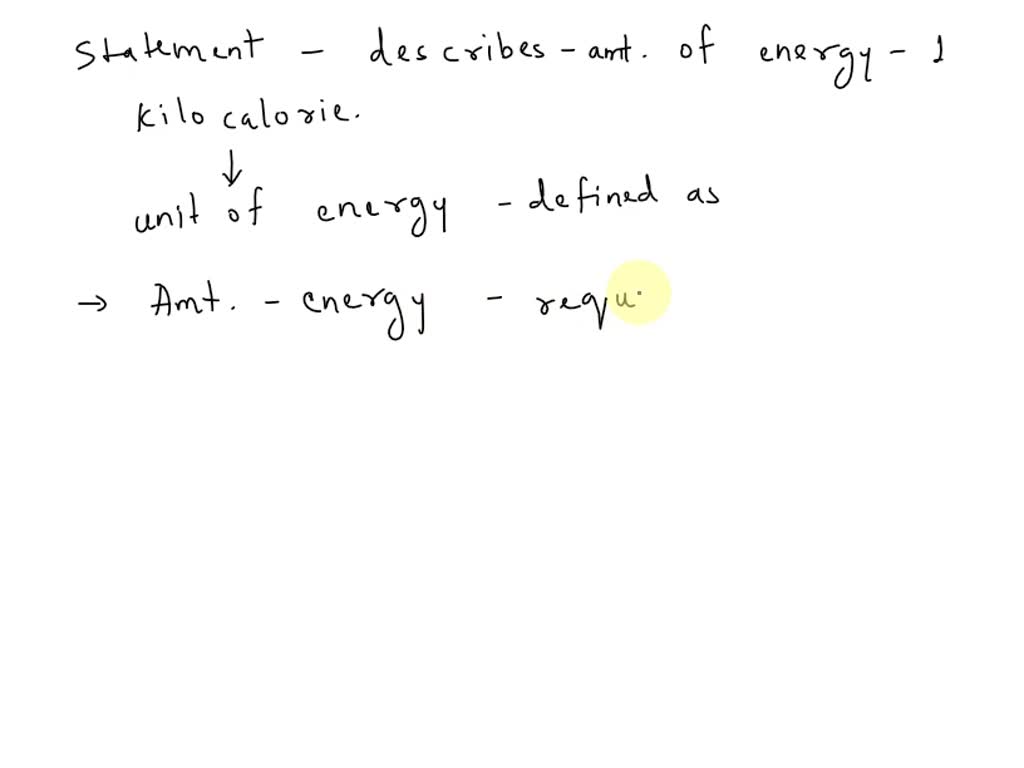 Statement - describes - amt. of energy - 1
kilo calorie.
↓
unit of energy - defined as
→ Amt. - energy - requ